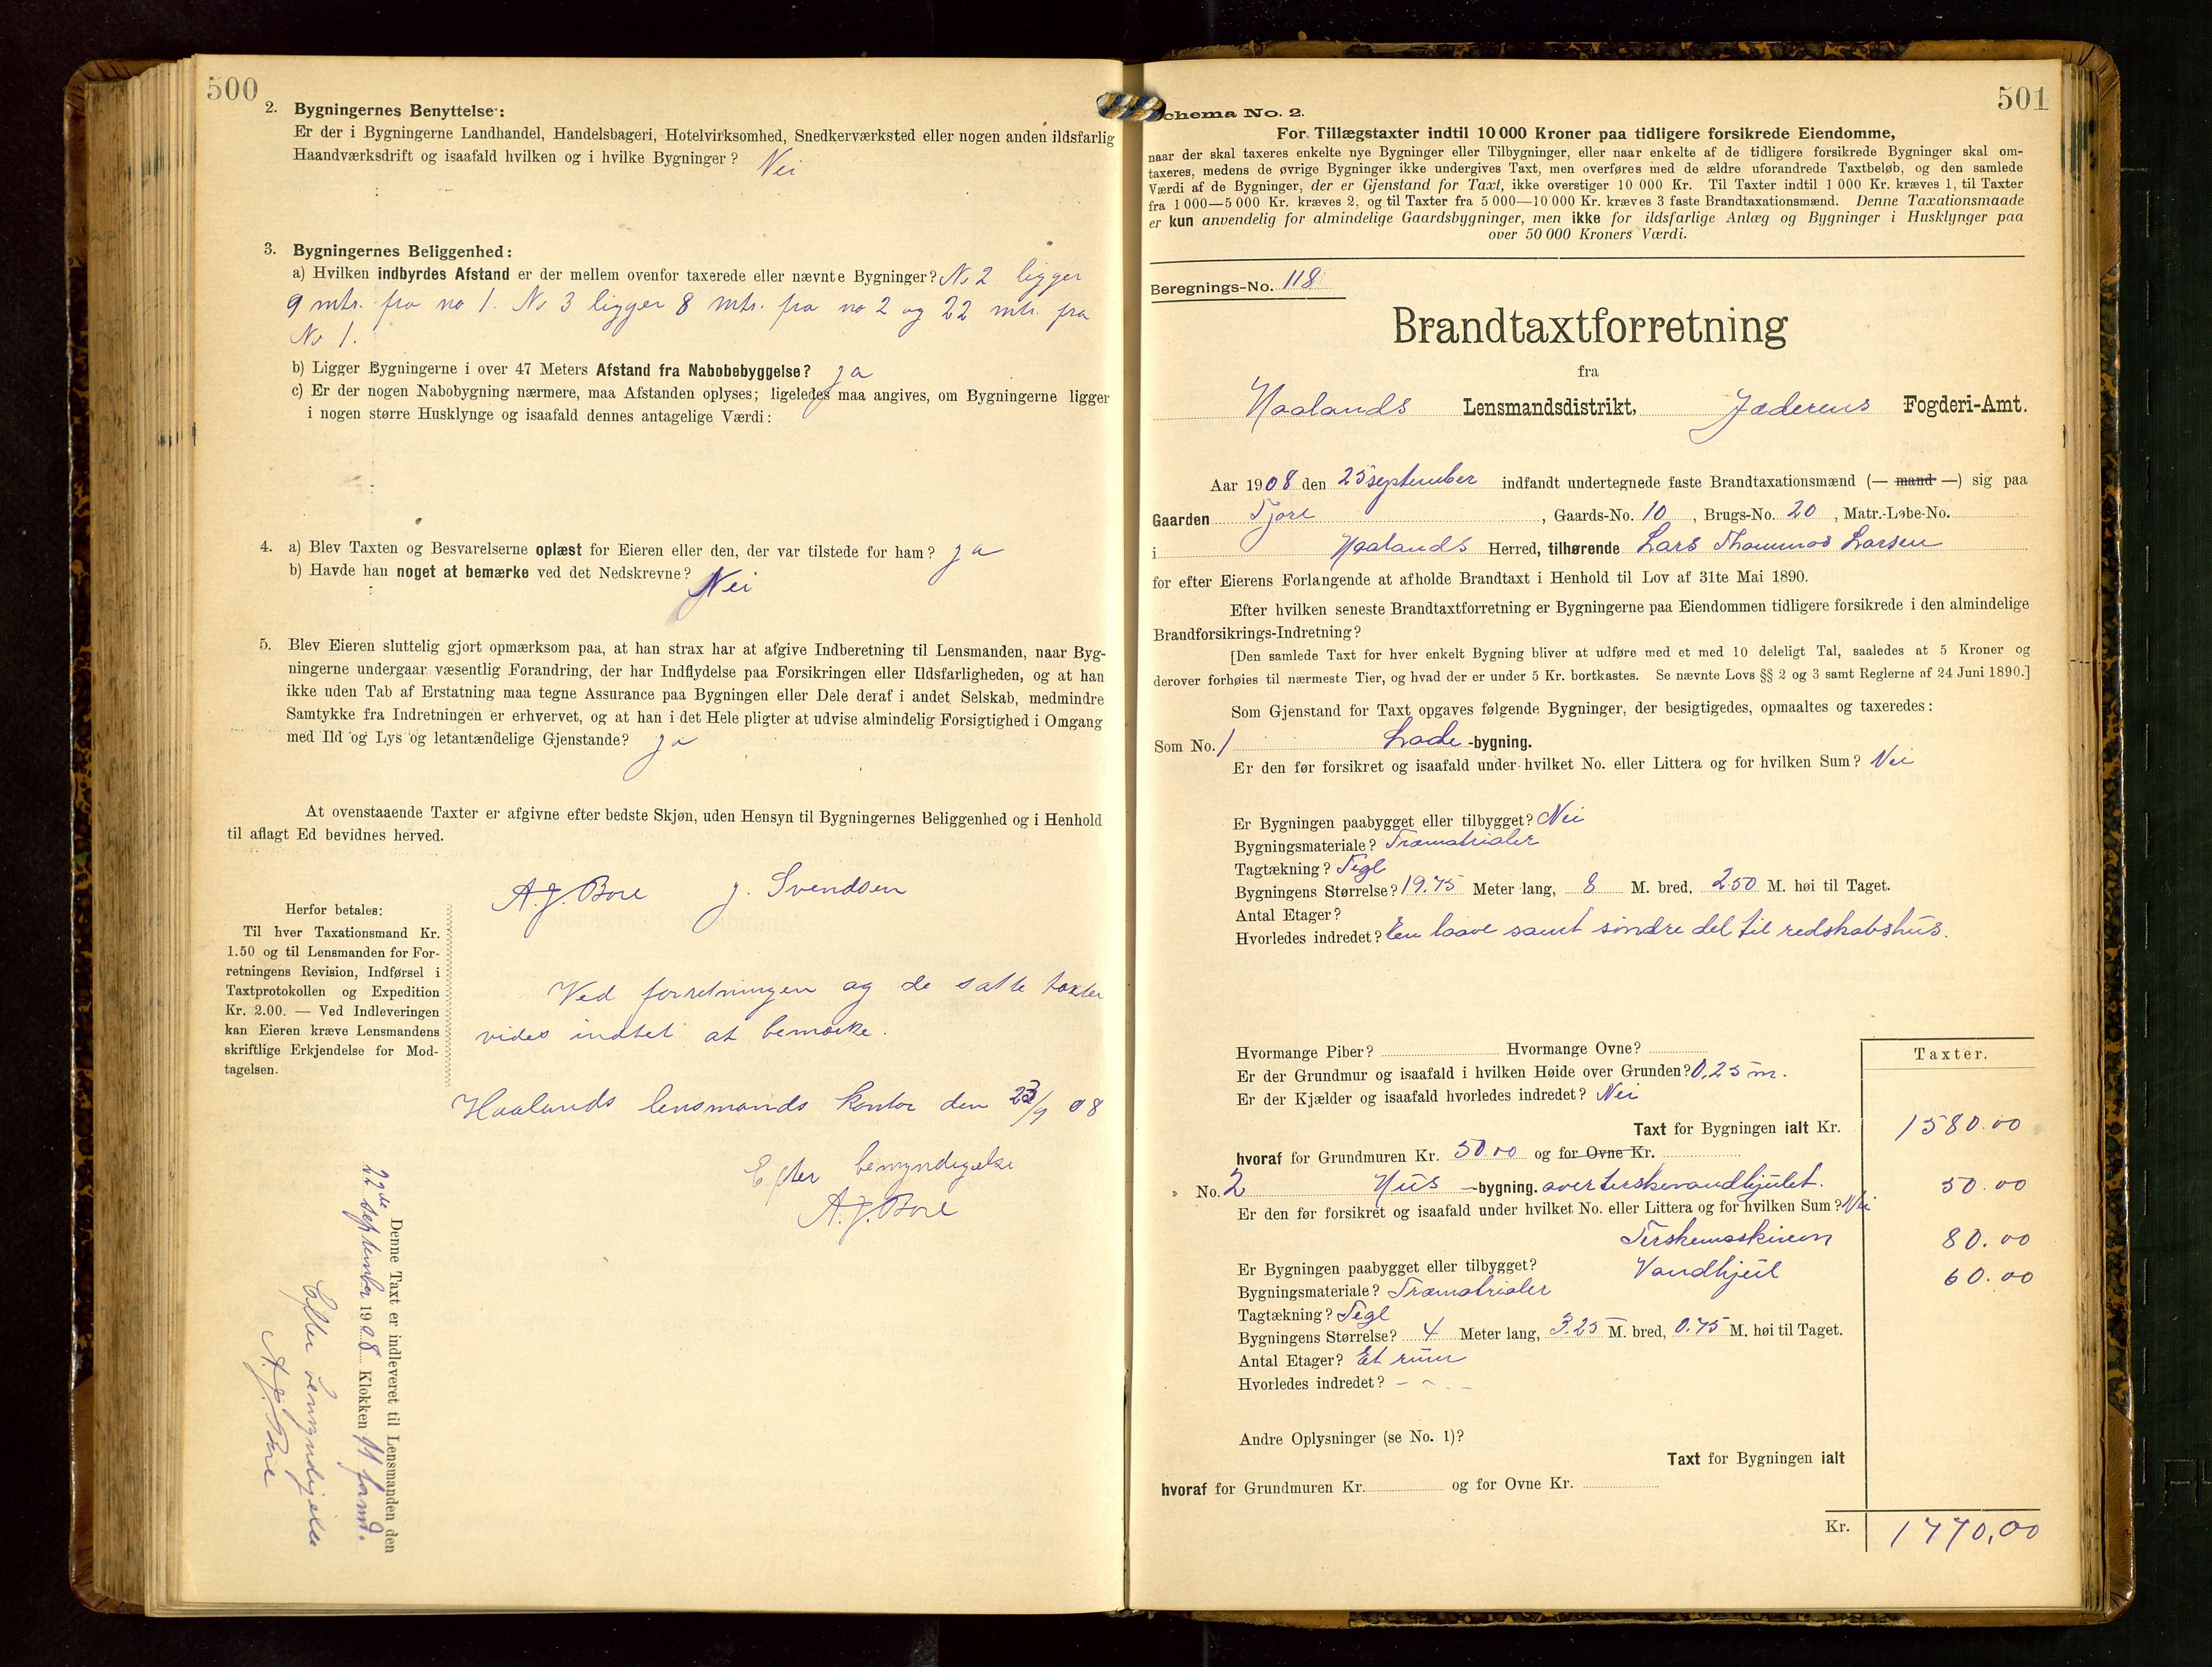 500
2. Bygningernes Benyttelse:
Er der i Bygningerne Landhandel, Handelsbageri, Hotelvirksomhed, Snedkerværksted eller nogen anden ildsfarlig
Haandværksdrift og isaafald hvilken og i hvilke Bygninger? Nei
3. Bygningernes Beliggenhed:
a) Hvilken indbyrdes Afstand er der mellem ovenfor taxerede eller nævnte Bygninger? No 2 ligger
9 mtr. fra no 1. No 3 ligger 8 mtr. fra no 2 og 22 mtr. fra
No 1.
b) Ligger Bygningerne i over 47 Meters Afstand fra Nabobebyggelse? ja
c) Er der nogen Nabobygning nærmere, maa Afstanden oplyses; ligeledes maa angives, om Bygningerne ligger
i nogen større Husklynge og isaafald dennes antagelige Værdi:
4. a) Blev Taxten og Besvarelserne oplæst for Eieren eller den, der var tilstede for ham? ja
b) Havde han noget at bemærke ved det Nedskrevne? Nei
5. Blev Eieren sluttelig gjort opmærksom paa, at han strax har at afgive Indberetning til Lensmanden, naar Byg-
ningerne undergaar væsentlig Forandring, der har Indflydelse paa Forsikringen eller Ildsfarligheden, og at han
ikke uden Tab af Erstatning maa tegne Assurance paa Bygningen eller Dele deraf i andet Selskab, medmindre
Samtykke fra Indretningen er erhvervet, og at han i det Hele pligter at udvise almindelig Forsigtighed i Omgang
med Ild og Lys og letantændelige Gjenstande? ja
At ovenstaaende Taxter er afgivne efter bedste Skjøn, uden Hensyn til Bygningernes Beliggenhed og i Henhold
til aflagt Ed bevidnes herved.
A. J. Bore J. Svendsen
Herfor betales:
Til hver Taxationsmand Kr.
1.50 og til Lensmanden for For-
retningens Revision, Indførsel i
Taxtprotokollen og Expedition
Kr. 2.00. — Ved Indleveringen
kan Eieren kræve Lensmandens
skriftlige Erkjendelse for Mod-
tagelsen.
Ved forretningen og de satte taxter
vides indtet at bemærke.
Haalands lensmands kontor den 23/9 08
Efter bemyndigelse
A. J. Bore
Denne Taxt er indleveret til Lensmanden den
22de september 1908 Klokken 11 formd.
Efter bemyndigelse
A. J. Bore
501
Schema No. 2.
For Tillægstaxter indtil 10 000 Kroner paa tidligere forsikrede Eiendomme,
naar der skal taxeres enkelte nye Bygninger eller Tilbygninger, eller naar enkelte af de tidligere forsikrede Bygninger skal om-
taxeres, medens de øvrige Bygninger ikke undergives Taxt, men overføres med de ældre uforandrede Taxtbeløb, og den samlede
Værdi af de Bygninger, der er Gjenstand for Taxt, ikke overstiger 10 000 Kr. Til Taxter indtil 1 000 Kr. kræves 1, til Taxter
fra 1 000—5 000 Kr. kræves 2, og til Taxter fra 5 000—10 000 Kr. kræves 3 faste Brandtaxationsmænd. Denne Taxationsmaade
er kun anvendelig for almindelige Gaardsbygninger, men ikke for ildsfarlige Anlæg og Bygninger i Husklynger paa
over 50 000 Kroners Værdi.
Beregnings-No. 118
Brandtaxtforretning
fra
Haalands Lensmandsdistrikt, Jæderens Fogderi-Amt.
Aar 1908 den 25 september indfandt undertegnede faste Brandtaxationsmænd (— mand —) sig paa
Gaarden Tjore, Gaards-No. 10, Brugs-No. 20, Matr.-Løbe-No.
i Haalands Herred, tilhørende Lars Thommas Larsen
for efter Eierens Forlangende at afholde Brandtaxt i Henhold til Lov af 31te Mai 1890.
Efter hvilken seneste Brandtaxtforretning er Bygningerne paa Eiendommen tidligere forsikrede i den almindelige
Brandforsikrings-Indretning?
[Den samlede Taxt for hver enkelt Bygning bliver at udføre med et med 10 deleligt Tal, saaledes at 5 Kroner og
derover forhøies til nærmeste Tier, og hvad der er under 5 Kr. bortkastes. Se nævnte Lovs §§ 2 og 3 samt Reglerne af 24 Juni 1890.]
Som Gjenstand for Taxt opgaves følgende Bygninger, der besigtigedes, opmaaltes og taxeredes:
Som No. 1 Lade-bygning.
Er den før forsikret og isaafald under hvilket No. eller Littera og for hvilken Sum? Nei
Er Bygningen paabygget eller tilbygget? Nei
Bygningsmateriale? Træmatrialer
Tagtækning? Tegl
Bygningens Størrelse? 19.75 Meter lang, 8 M. bred, 2.50 M. høi til Taget.
Antal Etager?
Hvorledes indredet? En laave samt søndre del til redskabshus.
Hvormange Piber? Hvormange Ovne?
Taxter.
Er der Grundmur og isaafald i hvilken Høide over Grunden? 0,25 m.
Er der Kjælder og isaafald hvorledes indredet? Nei
Taxt for Bygningen ialt Kr. 1580.00
hvoraf for Grundmuren Kr. 50.00 og for Ovne Kr.
» No. 2 Hus -bygning. over terskevandhjulet. 50.00
Er den før forsikret og isaafald under hvilket No. eller Littera og for hvilken Sum? Nei
Terskemaskinen 80.00
Er Bygningen paabygget eller tilbygget? Vandhjul 60.00
Bygningsmateriale? Træmatrialer
Tagtækning? Tegl
Bygningens Størrelse? 4 Meter lang, 3.25 M. bred, 0.75 M. høi til Taget.
Antal Etager? Et rum
Hvorledes indredet? - ~ . -
Andre Oplysninger (se No. 1)?
Taxt for Bygningen ialt
hvoraf for Grundmuren Kr. og for Ovne Kr.
Kr. 1770,00